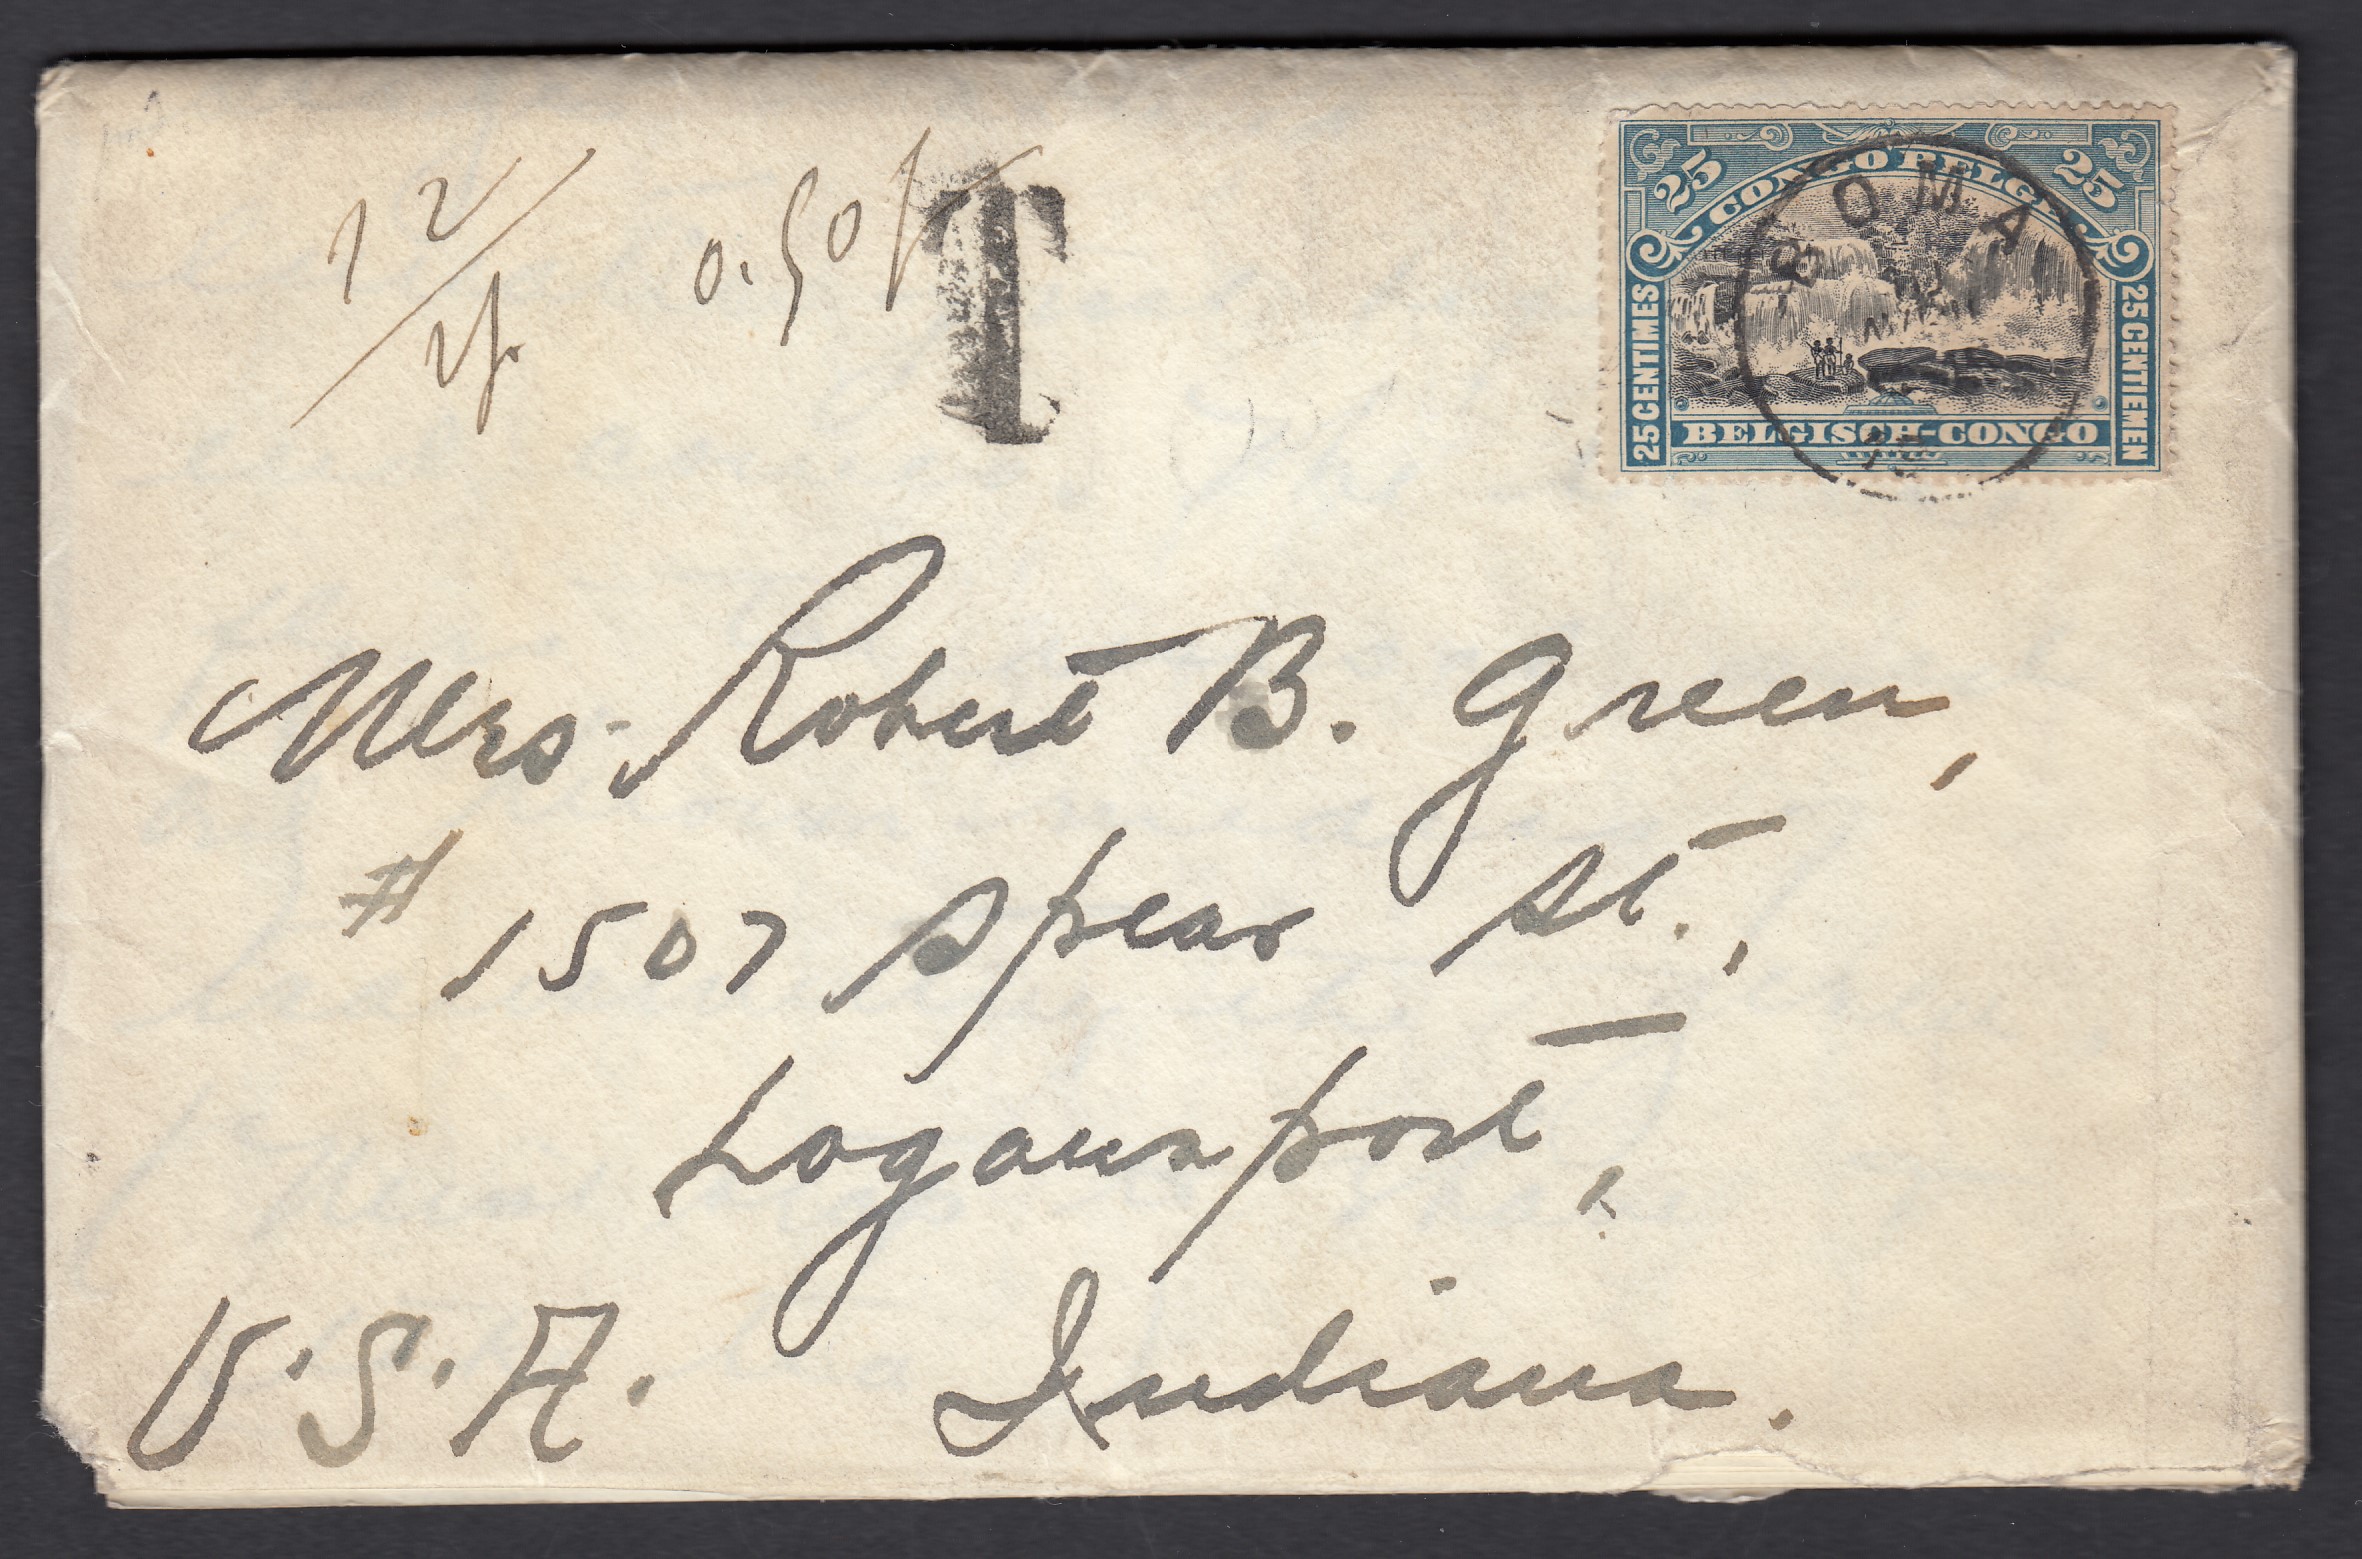 12
0.50f
T
25 CONGO BELGE 25
25 CENTIMES
25 CENTIEMEN
BOMA
BELGISCH-CONGO
Mrs. Robert B. Green,
# 1507 Spear St.,
Logansport,
Indiana.
U.S.A.